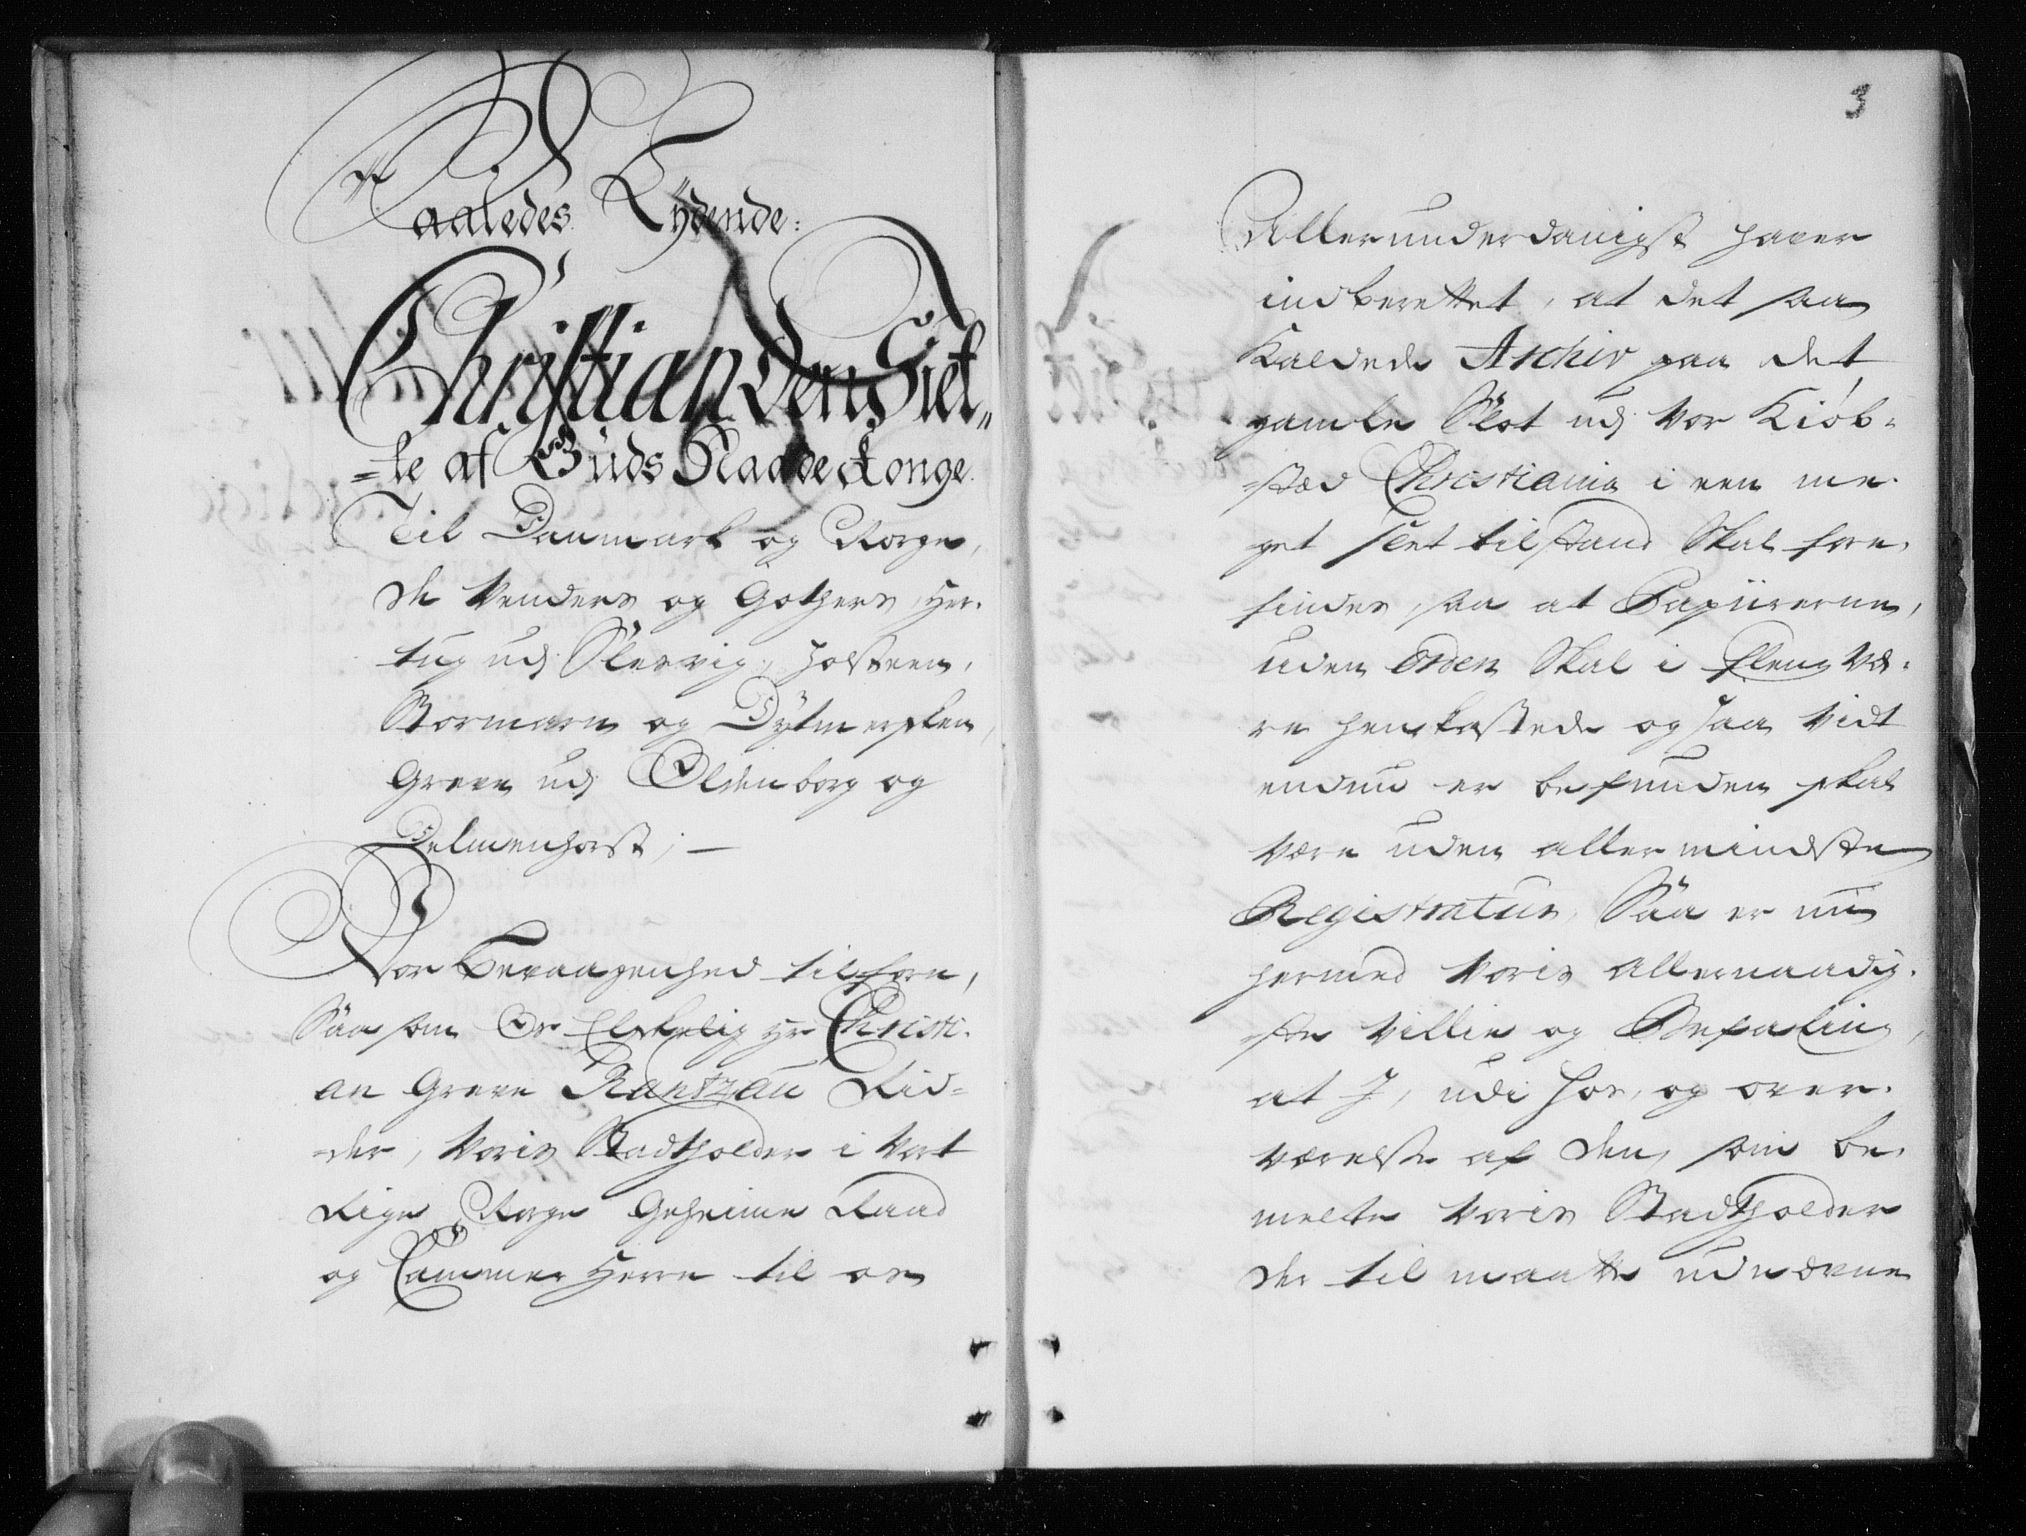 Saaledes Lÿdende:
Christian Den Siet„
„te af Guds Naade Konge
Til Danmark og Norge,
de Venders og Gothers, Her„
tug udj Slesvig, Holsteen,
Stormarn og Dÿtmersken,
Greve udj Oldenborg og
Delmenhorst; —
Vor Bevaagenhed tilforn,
Saasom Os Elskelig Hr Christi„
an Greve Rantzau Rid„
„der, Voris Stadtholder i Vort
Rige Norge Geheime Raad
og Cammer Herre til os
3
Allerunderdanigst haver
indberettet, at det saa
Kaldede Archiv paa det
gamle Slot udj Vor Kiøb„
„stæd Christiania i een me„
get slet tilstand Skal fore„
findes, saa at Papiirerne,
uden Orden Skal i fleng Væ„
re henkastede og saa Vidt
endnu er befunden skal
Være uden allermindste
Registratur, Saa er nu
hermed Voris Allernaadig„
„ste Villie og Befaling,
at I, udi Hos, og over„
værelse af den, som be„
melte Voris Stadtholder
der til maatte udnævne